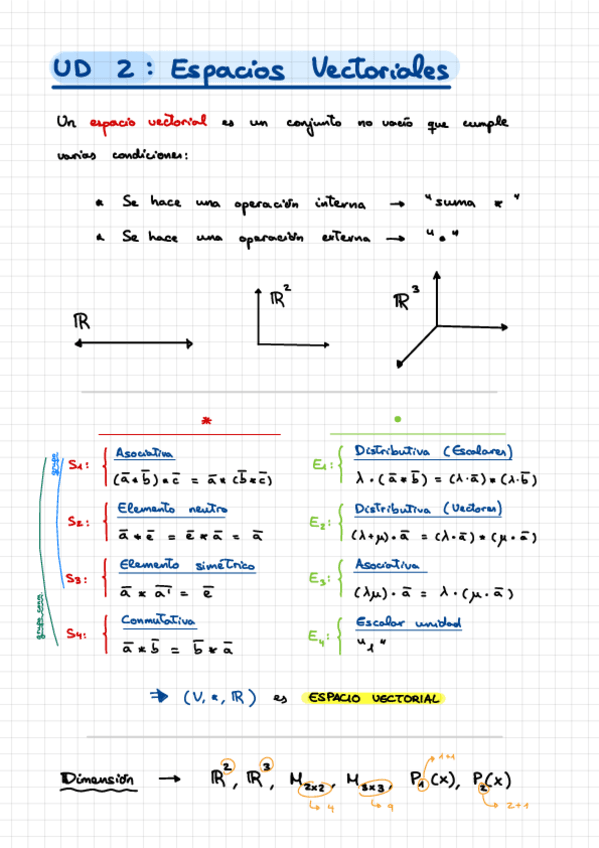 UD 2: Espacios Vectoriales
Un espacio vectorial es un conjunto no vacío que cumple
varias condiciones:
* Se hace una operación interna → "suma *"
* Se hace una operación externa → "•"
ℝ
ℝ²
ℝ³
*
•
grupo
grupo conm.
S₁: Asociativa
(ā * b̄) * c̄ = ā * (b̄ * c̄)
S₂: Elemento neutro
ā * ē = ē * ā = ā
S₃: Elemento simétrico
ā * ā' = ē
S₄: Conmutativa
ā * b̄ = b̄ * ā
E₁: Distributiva (Escalares)
λ · (ā * b̄) = (λ · ā) * (λ · b̄)
E₂: Distributiva (Vectores)
(λ+μ) · ā = (λ · ā) * (μ · ā)
E₃: Asociativa
(λμ) · ā = λ · (μ · ā)
E₄: Escalar unidad
"1"
⇒ (V, *, ℝ) es ESPACIO VECTORIAL
Dimensión → ℝ², ℝ³, M₂ₓ₂, M₃ₓ₃, P₁(x), P₂(x)
1+1
4
9
2+1